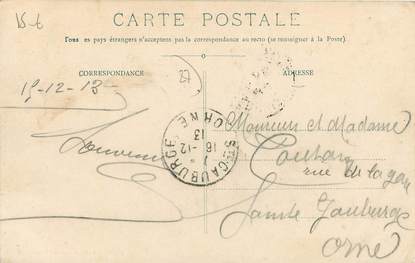 15-6
CARTE POSTALE
Tous les pays étrangers n'acceptent pas la correspondance au recto (se renseigner à la Poste).
CORRESPONDANCE
ADRESSE
27
15-12-13
Souvenir
STE GAUBURGE
16-12
13
ORNE
Monsieur et Madame
rue de la gare
Sainte Gauburge
Orne